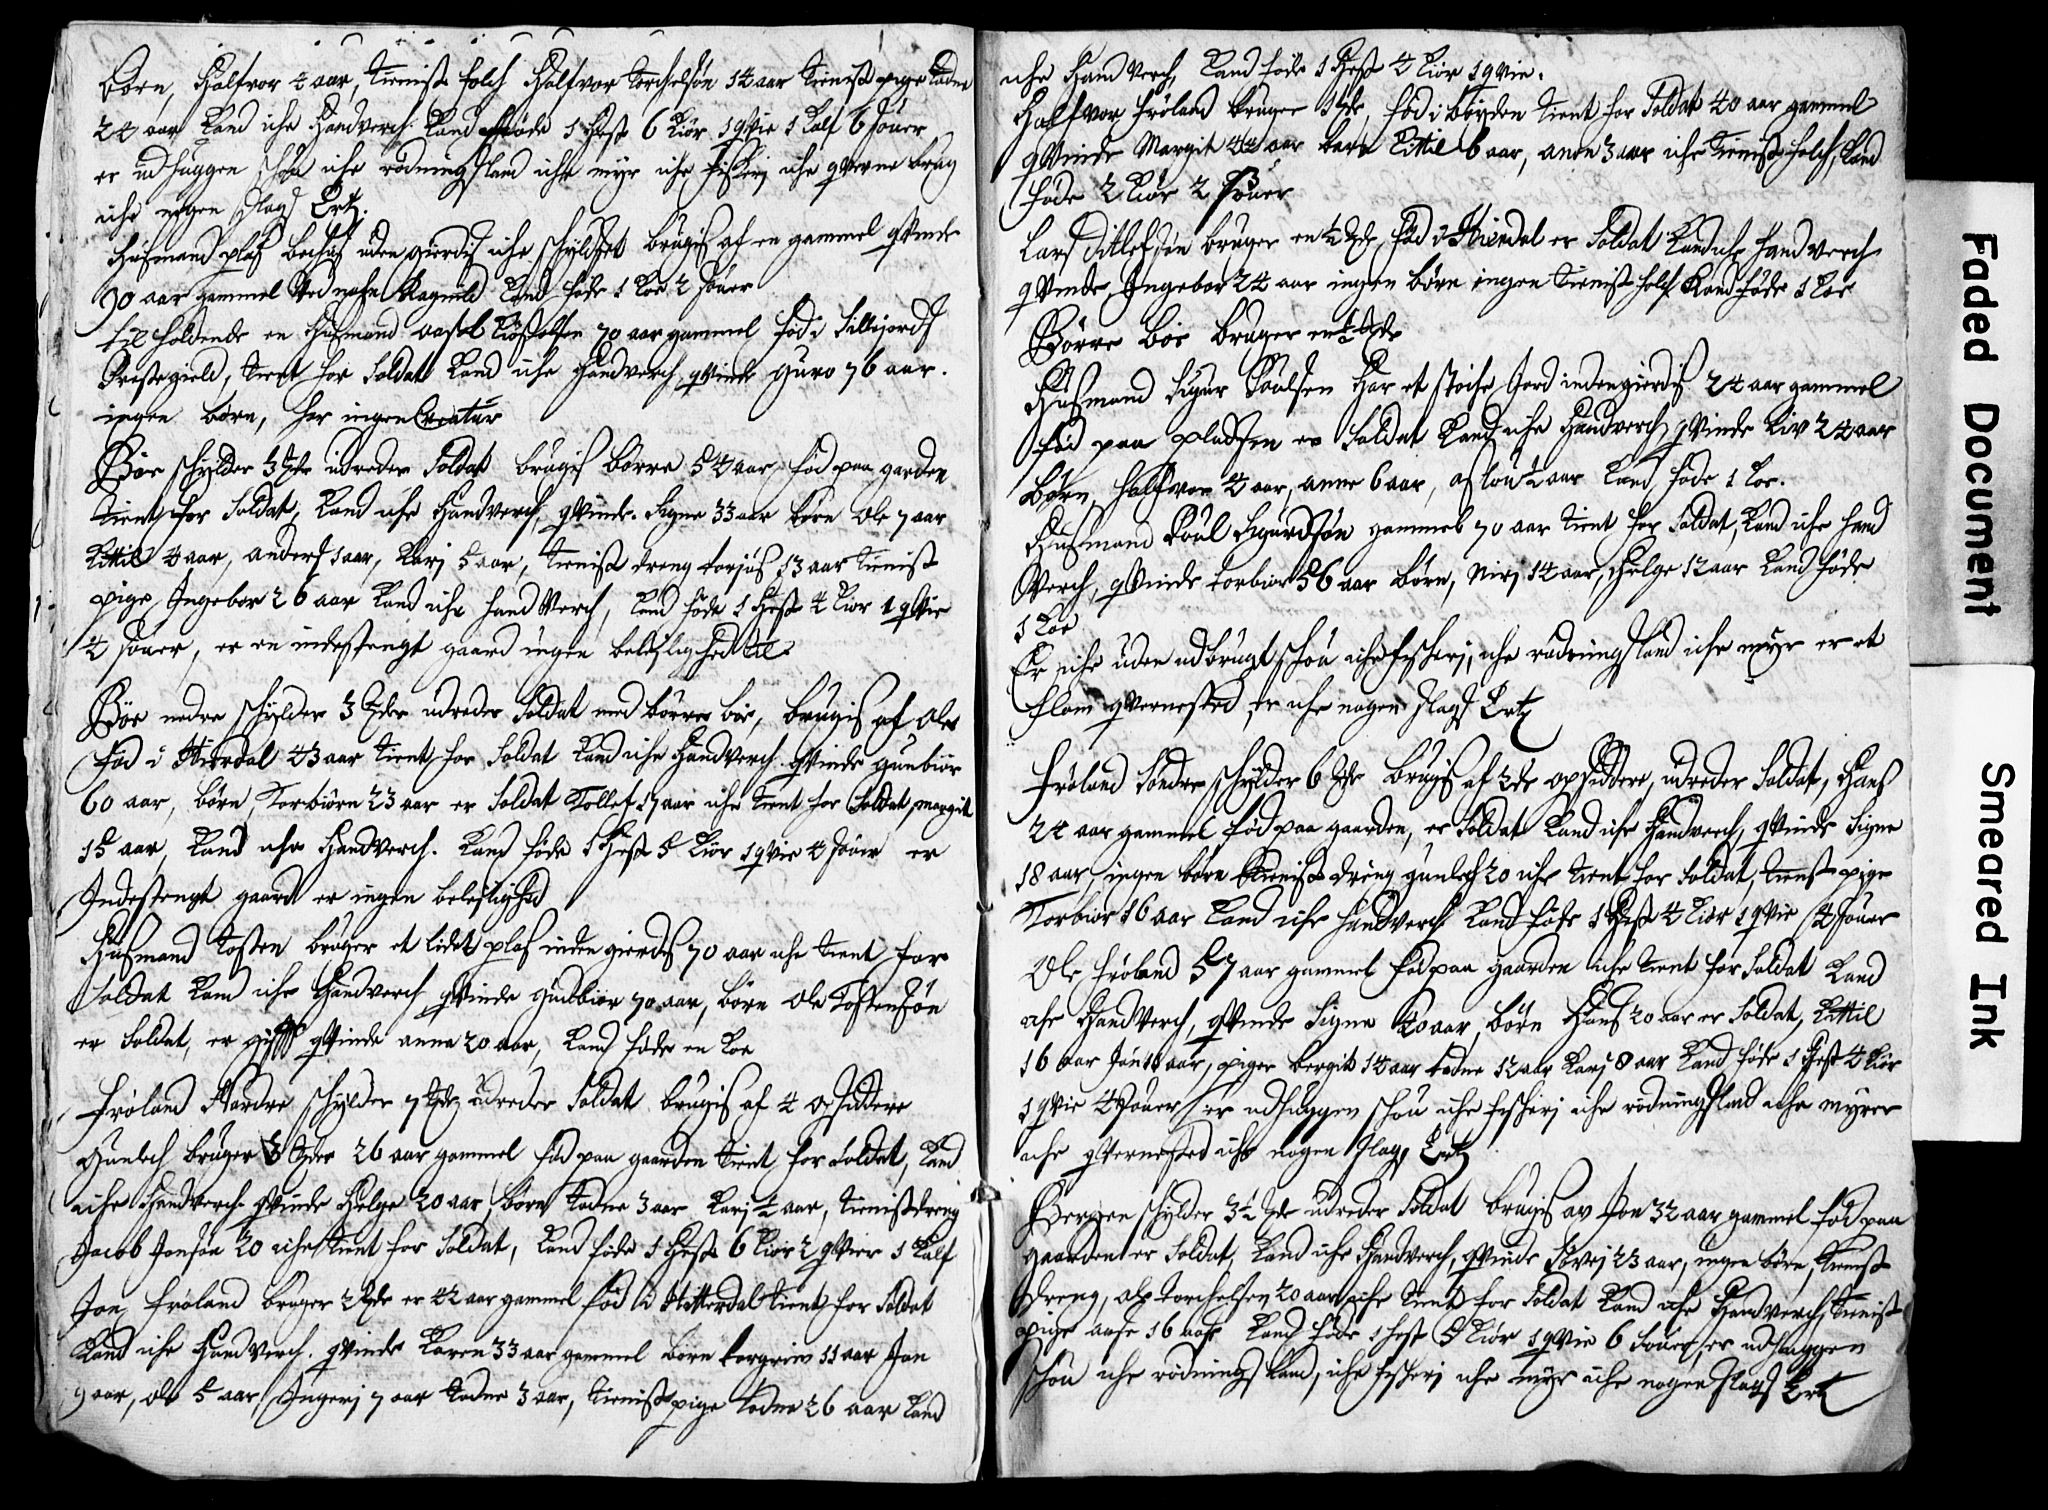 børn, Halfvor 4 aar, tienist folch Halfvor Torchelsøn 14 aar tienist pige Todne
24 aar kand iche Handverch kand føde 1 Hest 6 kiør 1 qvie 1 kalf 6 souer
er udhuggen schou iche rødningsland iche myr iche fischerj iche qverne brug
iche nogen slags Ertz.
Huusmand plass uden gierdis iche schyldset brugis af en gammel qvinde
90 aar gammel ved nafn Ragnild kand føde 1 koe 2 souer
til holdende en Husmand 70 aar gammel fød i Sillejords
Prestegield, tient for Soldat kand iche Handverch, qvinde Guro 76 aar.
ingen børn, har ingen Creatur
Bøe schylder 3 udreder Soldat brugis Børre 54 aar fød paa garden
tient for Soldat, kand iche Handverch, qvinde Signe 33 aar børn Ole 7 aar
Kittil 4 aar, anders 1 aar, Karj 5 aar, tienist dreng torjus 13 aar tienist
pige Ingebor 26 aar kand iche hand verch, kand føde 1 Hest 4 kiør 1 qvie
4 souer, er en indestengt gaard ingen beleilighed til
Bøe nedre schylder 3 udreder Soldat med børre bøe, brugis af Ole
fød i Hierdal 43 aar tient for Soldat kand iche Handverch qvinde gunbiør
60 aar, børn, Torbiørn 23 aar er Soldat Tollef 17 aar iche tient for Soldat, margit
15 aar, kand iche Handverch. kand føde 1 Hest 5 kiør 1 qvie 4 souer er
Indestengt gaard er ingen beleilighed
Husmand Tosten bruger et lidet plass inden gierdes 70 aar iche tient for
Soldat kand iche Handverch qvinde Gudbiør 70 aar, børn Ole Tostensøn
er Soldat, er gifft qvinde anna 20 aar, kand føde en koe
Frøland Nordre schylder 7 udreder Soldat brugis af 4 opsiddere
Gunlech bruger 3 26 aar gammel fød paa gaarden tient for Soldat, kand
iche Handverch qvinde Helge 20 aar, børn Todne 3 aar Karj ½ aar, tienist dreng
Jacob Jonsøn 20 iche tient for Soldat, kand føde 1 Hest 6 kiør 2 qvier 1 kalf
Jon Frøland bruger 2 er 42 aar gammel fød i Hitterdal tient for Soldat
kand iche Handverch. qvinde Karen 33 aar gammel børn torgrim 11 aar Jon
9 aar, Ole 5 aar, Ingerj 7 aar Todne 3 aar, tienist pige Todne 26 aar kand
iche Handverch kand føde 1 Hest 4 kiør 1 qvie.
Halfvor Frøland bruger 1 fød i bøyden tient for Soldat 40 aar gammel
qvinde Margit 44 aar barn Kittil 6 aar, anne 3 aar iche tienist folch, kand
føde 2 kiør 2 souer
Lars Ditlefsøn bruger en ½ fød i Hierdal er Soldat kand iche handverch
qvinde Ingebor 24 aar ingen børn ingen tienist folch kand føde 1 koe
Børre bøe bruger en ½
Husmand Sigur Poulsen har et støche Jord inden gierdis 24 aar gammel
fød paa pladsen er Soldat kand iche Handverch, qvinde Liv 24 aar
børn, Halfvor 4 aar, anne 6 aar, ½ aar kand føde 1 koe.
Husmand Poul Sigurdsøn gammel 70 aar tient for Soldat, kand iche hand
verch, qvinde torbiør 56 aar børn, 14 aar, Helge 12 aar kand føde
1 koe
Er iche uden udbrugt schou iche fischerj, iche rødningsland iche myr er et
flom qvernested, er iche nogen slags Ertz
Frøland Søndre schylder 6 brugis af 2de opsiddere, udreder Soldat, Hans
24 aar gammel fød paa gaarden, er Soldat kand iche Handverch, qvinde Signe
18 aar, ingen børn tienist dreng gunlech 20 iche tient for Soldat, tienist pige
Torbiør 16 aar kand iche handverch kand føde 1 Hest 4 kiør 1 qvie 4 souer
Ole Frøland 57 aar gammel fød paa gaarden iche tient for Soldat kand
iche Handverch, qvinde Signe 40 aar, børn Hans 20 aar er Soldat, Kittil
16 aar Jon 11 aar, piger bergit 14 aar todne 12 aar Karj 8 aar kand føde 1 Hest 4 kiør
1 qvie 4 souer, er udhuggen schou iche fischerj iche rødningsland iche myrer
iche qvernested iche nogen slags Ertz
Bergen schylder 3½ udreder Soldat brugis av Jon 32 aar gammel fød paa
gaarden er Soldat, kand iche Handverch, qvinde 23 aar, ingen børn, tienist
dreng, Ole Torchelsen 20 aar iche tient for Soldat kand iche Handverch, tienist
pige aase 16 aar kand føde 1 hest 5 kiør 1 qvie 6 souer, er udhuggen
schou iche rødnings land, iche fischerj iche myr iche nogen slags Ertz
Faded Document
Smeared Ink